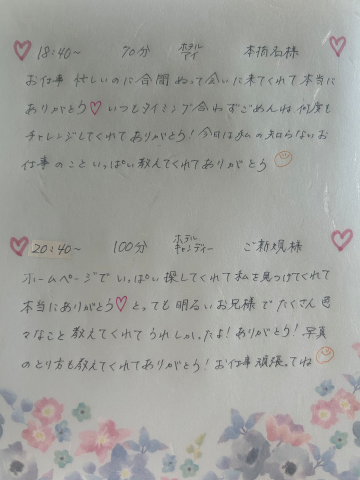 18:40~ 70分 ホテル アイ 本指名様
お仕事 忙しいのに合間 ぬって会いに来てくれて本当に
ありがとう♡ いつもタイミング合わずごめんね 何度も
チャレンジしてくれてありがとう! 今日は私の知らないお
仕事のこといっぱい教えてくれてありがとう
20:40~ 100分 ホテル キャンディー ご新規様
ホームページで いっぱい探してくれて私を見つけてくれて
本当にありがとう♡ とっても明るいお兄様でたくさん色
々なこと教えてくれてうれしかったよ! ありがとう! 写真
のとり方も教えてくれてありがとう! お仕事頑張ってね